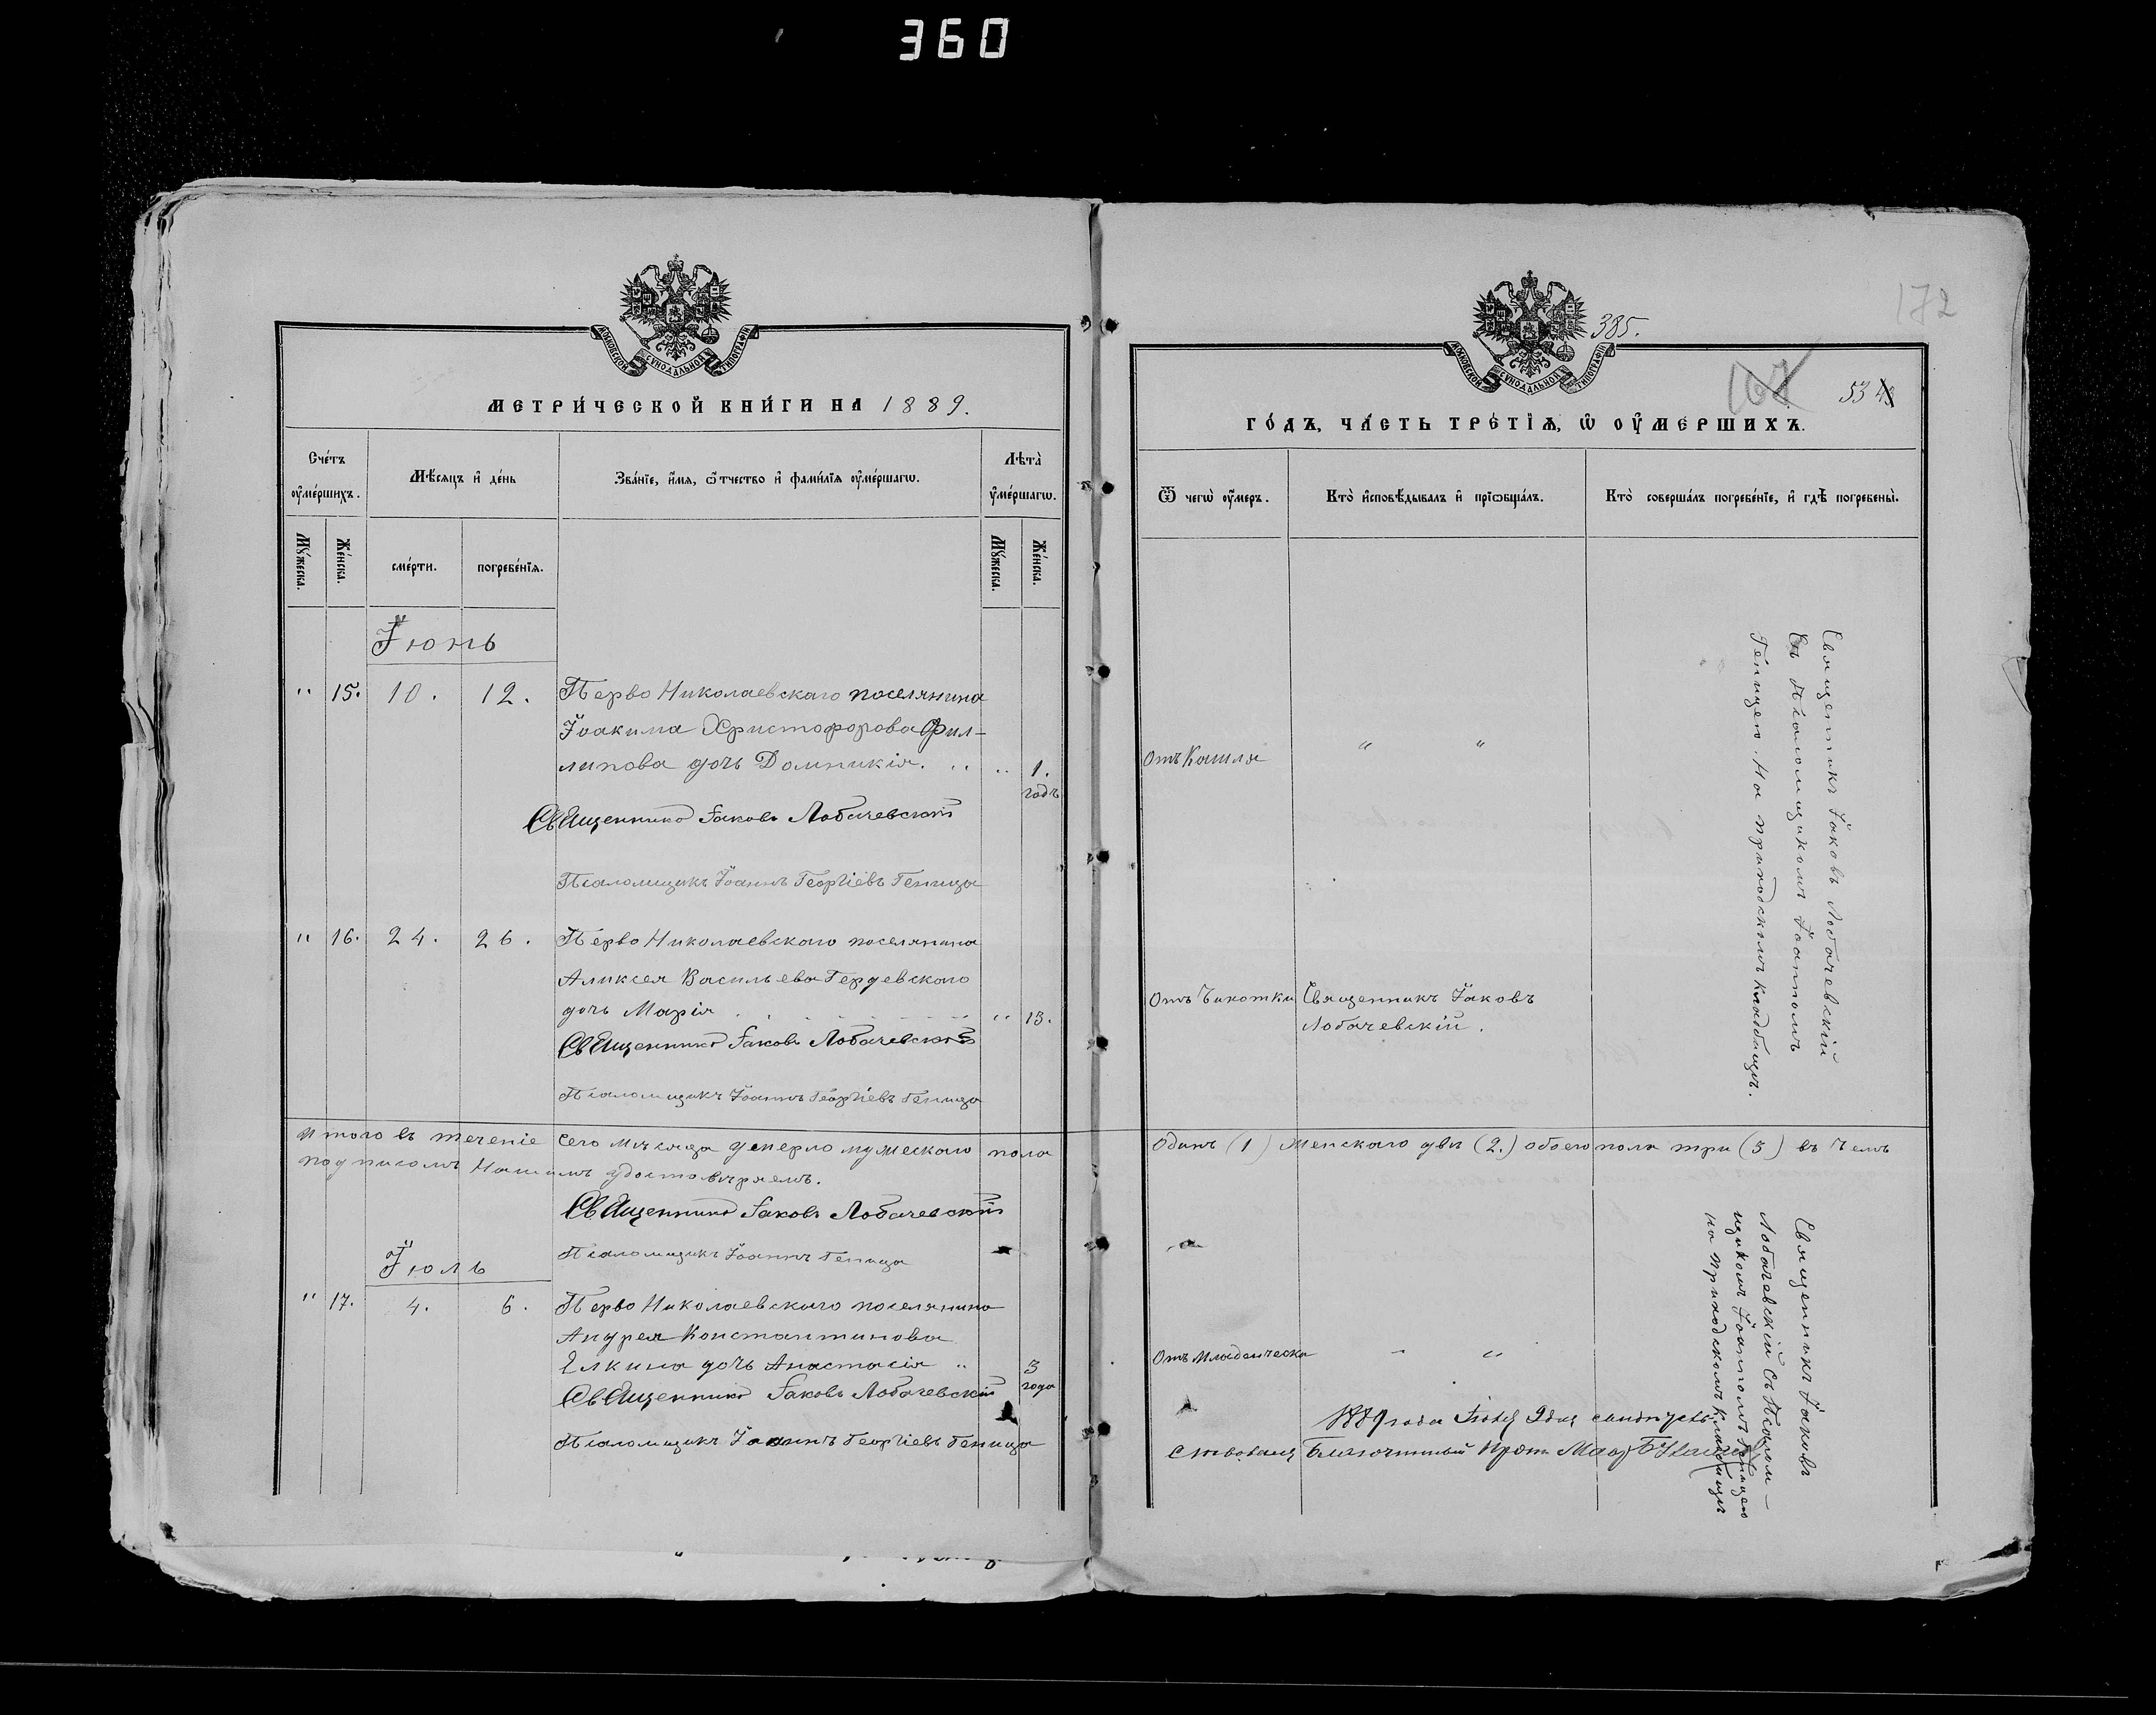 360
МОСКОВСКОЙ СУНОДАЛЬНОЙ ТИПОГРАФІИ
МЕТРИ́ЧЕСКОЙ КНИ́ГИ НА 1889.
Сче́тъ оу҆ме́ршихъ.
Мѣ́сяцъ и҆ де́нь
Зва́нїе, и҆́мя, ѻ҆́тчество и҆ фами́лїя оу҆ме́ршагѡ.
Лѣта̀ оу҆ме́ршагѡ.
Му́жеска.
Же́нска.
сме́рти.
погребе́нїя.
Му́жеска.
Же́нска.
Іюнь
" 15. 10. 12. Перво Николаевскаго поселянина
Іоакима Христофорова Фил-
липова дочь Домникія. .. .. 1.
годъ
Священникъ Іаковъ Лобачевскій
Псаломщикъ Іоаннъ Георгіевъ Геница
" 16. 24. 26. Перво Николаевскаго поселянина
Аликсея Васильева Гердевскаго
дочь Марія " 13.
Священникъ Іаковъ Лобачевскій
Псаломщикъ Іоаннъ Георгіевъ Геница
Итого въ теченіе сего мѣсяца умерло мужескаго пола
подписомъ Нашимъ удостовѣряемъ.
Священникъ Іаковъ Лобачевскій
Псаломщикъ Іоаннъ Геница
Іюль
" 17. 4. 6. Перво Николаевскаго поселянина
Андрея Константинова
Елкина дочь Анастасія .. 3
года
Священникъ Іаковъ Лобачевскій
Псаломщикъ Іоаннъ Георгіевъ Геница
172
385.
МОСКОВСКОЙ СУНОДАЛЬНОЙ ТИПОГРАФІИ
167 53
ГО́ДЪ, ЧА́СТЬ ТРЕ́ТЇѦ, Ѡ҆ ОУ҆МЕ́РШИХЪ.
Ѿ чегѡ̀ оу҆́меръ.
Кто̀ и҆сповѣ́дывалъ и҆ прїѡбща́лъ.
Кто̀ соверша́лъ погребе́нїе, и҆ гдѣ̀ погребены̀.
Отъ Кашля " "
Священникъ Іаковъ Лобачевскій
съ Псаломщикомъ Іоанномъ
Геницею. На приходскомъ кладбищѣ.
Отъ Чихотки Священникъ Іаковъ
Лобачевскій.
Одинъ (1) Женскаго двѣ (2.) обоего пола три (3) въ чемъ
Отъ Младенческа " "
Священникъ Іаковъ
Лобачевскій Съ Псалом-
щикомъ Іоанномъ Геницею
на приходскомъ Кладбищѣ
1889 года
ствовалъ Благочинный